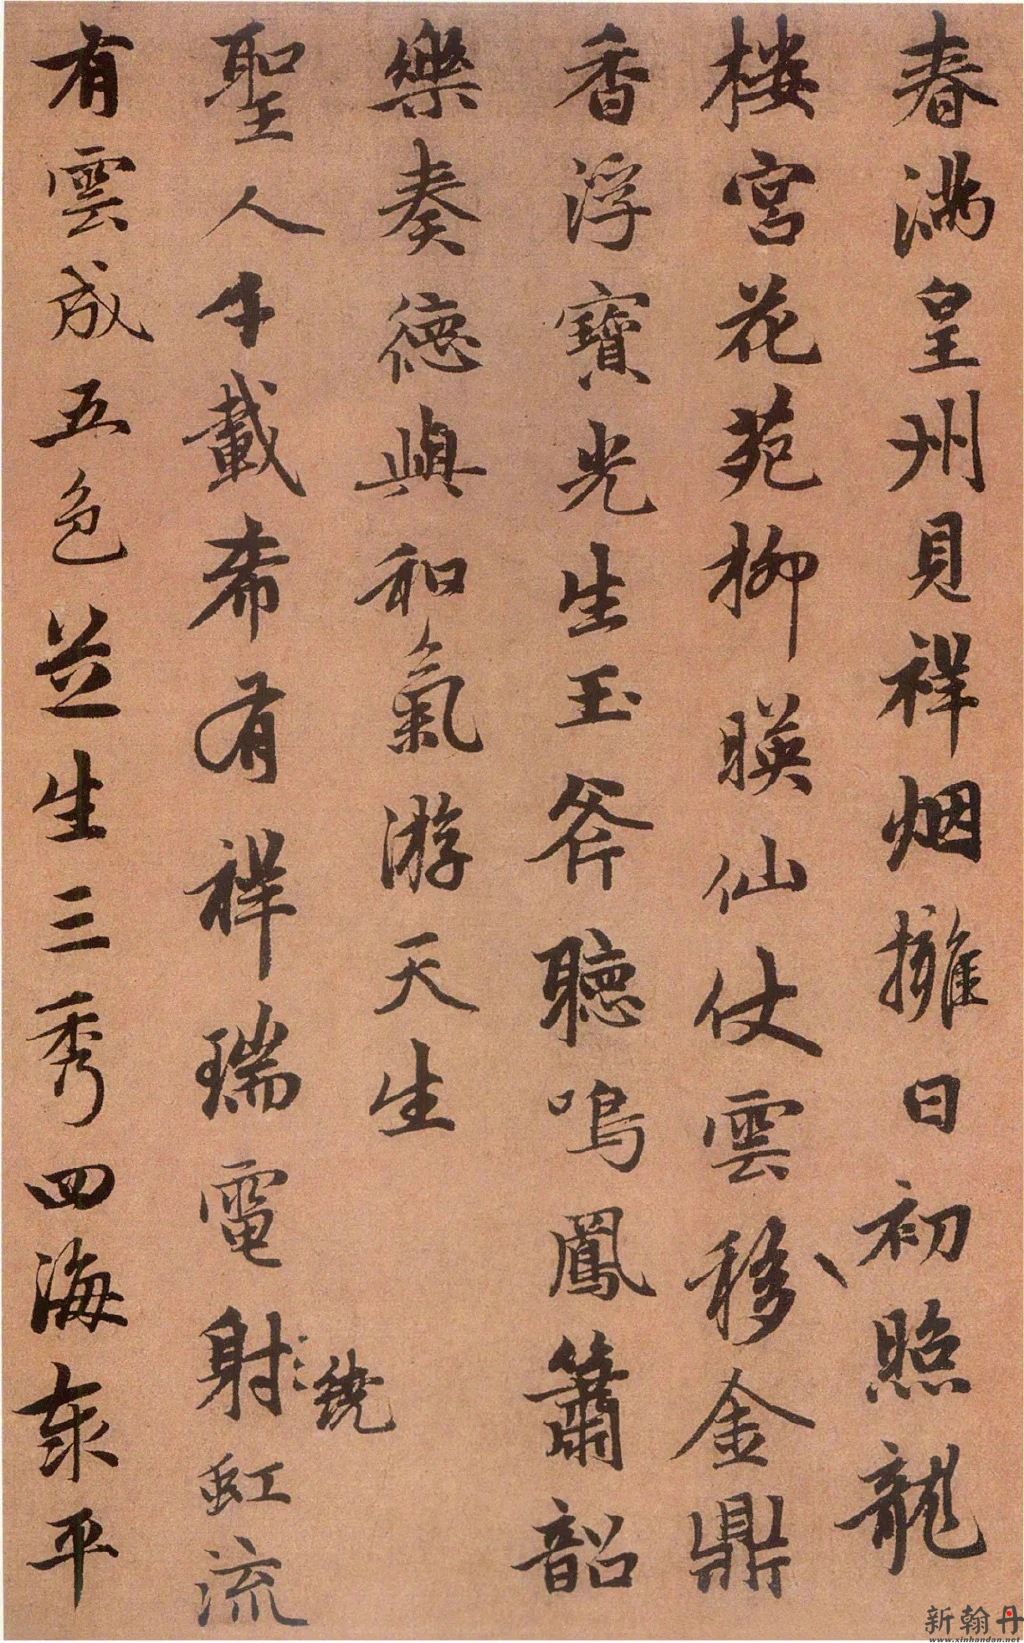 春满皇州見祥烟擁日初照龍
楼宮花苑柳暎仙仗雲移金鼎
香浮寶光生玉斧聽鳴鳳簫韶
樂奏德與和氣游天生
聖人千載希有祥瑞電射虹流
繞
有雲成五色芝生三秀四海泰平
新翰丹
www.xinhandan.net